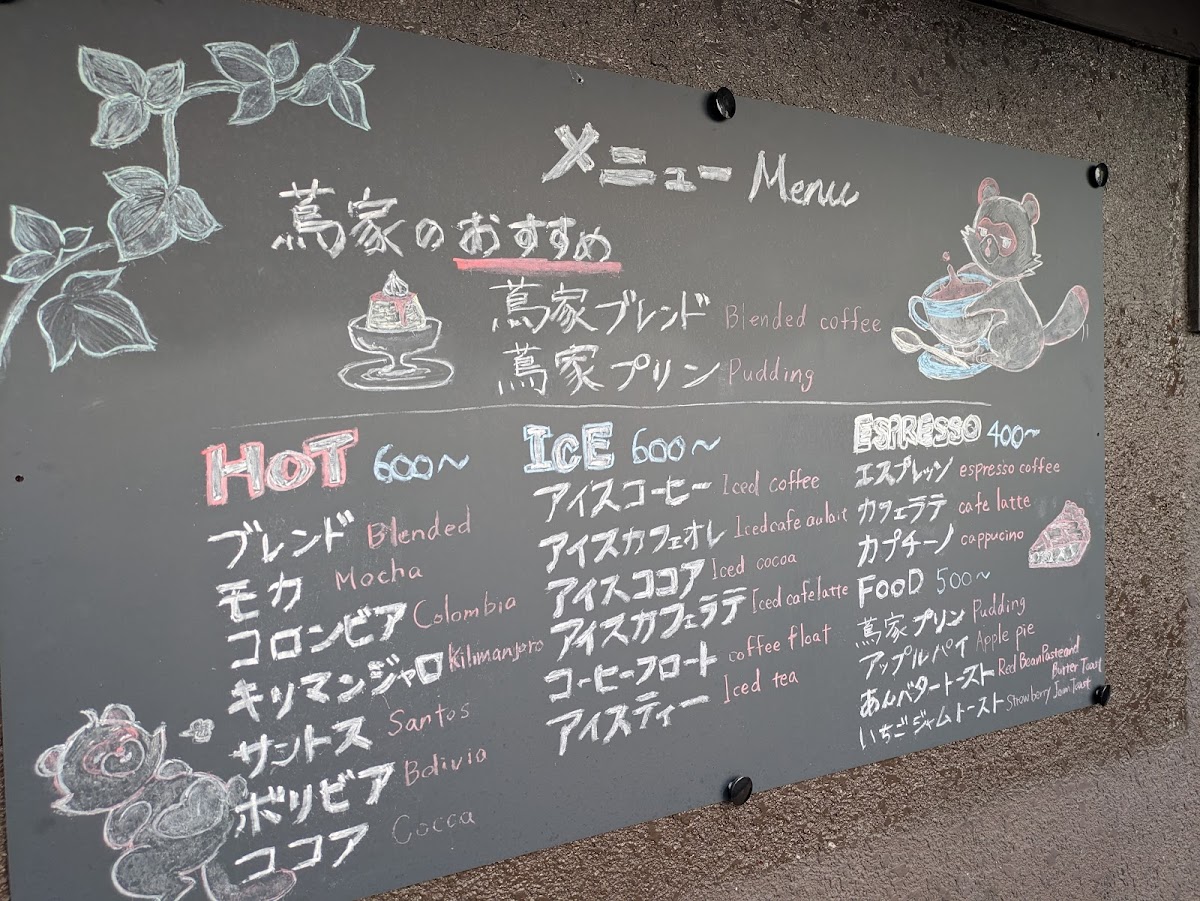 メニュー Menu
蔦家のおすすめ
蔦家ブレンド Blended coffee
蔦家プリン Pudding
HOT 600～
ブレンド Blended
モカ Mocha
コロンビア Colombia
キリマンジャロ Kilimanjaro
サントス Santos
ボリビア Bolivia
ココア Cocca
ICE 600～
アイスコーヒー Iced coffee
アイスカフェオレ Iced cafe au lait
アイスココア Iced cocoa
アイスカフェラテ Iced cafe latte
コーヒーフロート coffee float
アイスティー Iced tea
ESPRESSO 400～
エスプレッソ espresso coffee
カフェラテ cafe latte
カプチーノ cappucino
FOOD 500～
蔦家プリン Pudding
アップルパイ Apple pie
あんバタートースト Red Bean Paste and Butter Toast
いちごジャムトースト Strowberry Jam Toast